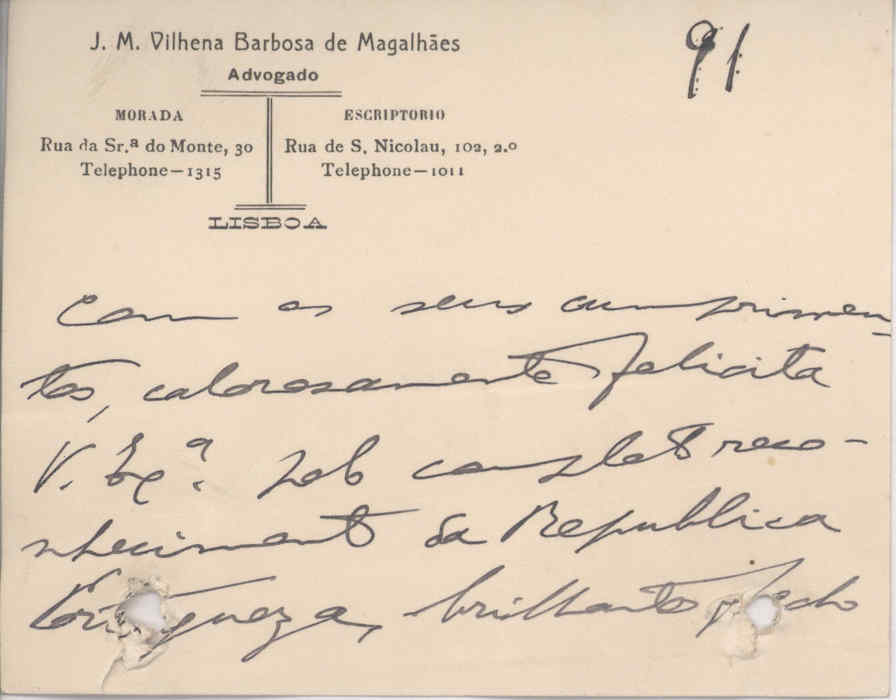 J. M. Vilhena Barbosa de Magalhães
91
Advogado
MORADA
Rua da Sr.ª do Monte, 30
Telephone—1315
ESCRIPTORIO
Rua de S. Nicolau, 102, 2.º
Telephone—1011
LISBOA
Com os seus cumprimen-
tos, calorosamente felicita
V. Exª. pelo completo reco-
nhecimento da Republica
Portugueza, brilhante fecho